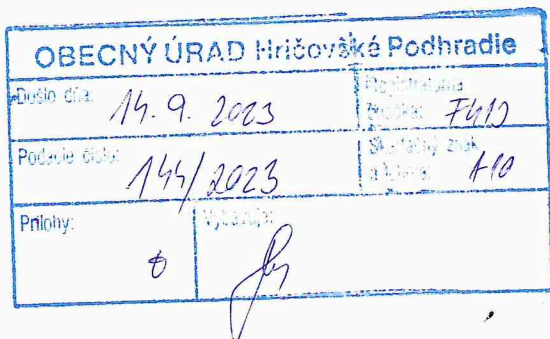 OBECNÝ ÚRAD Hričovské Podhradie
Došlo dňa: 14. 9. 2023
Registratúrna
značka:
Podacie číslo: 144/2023
znak
A10
Prílohy:
Vybavuje: